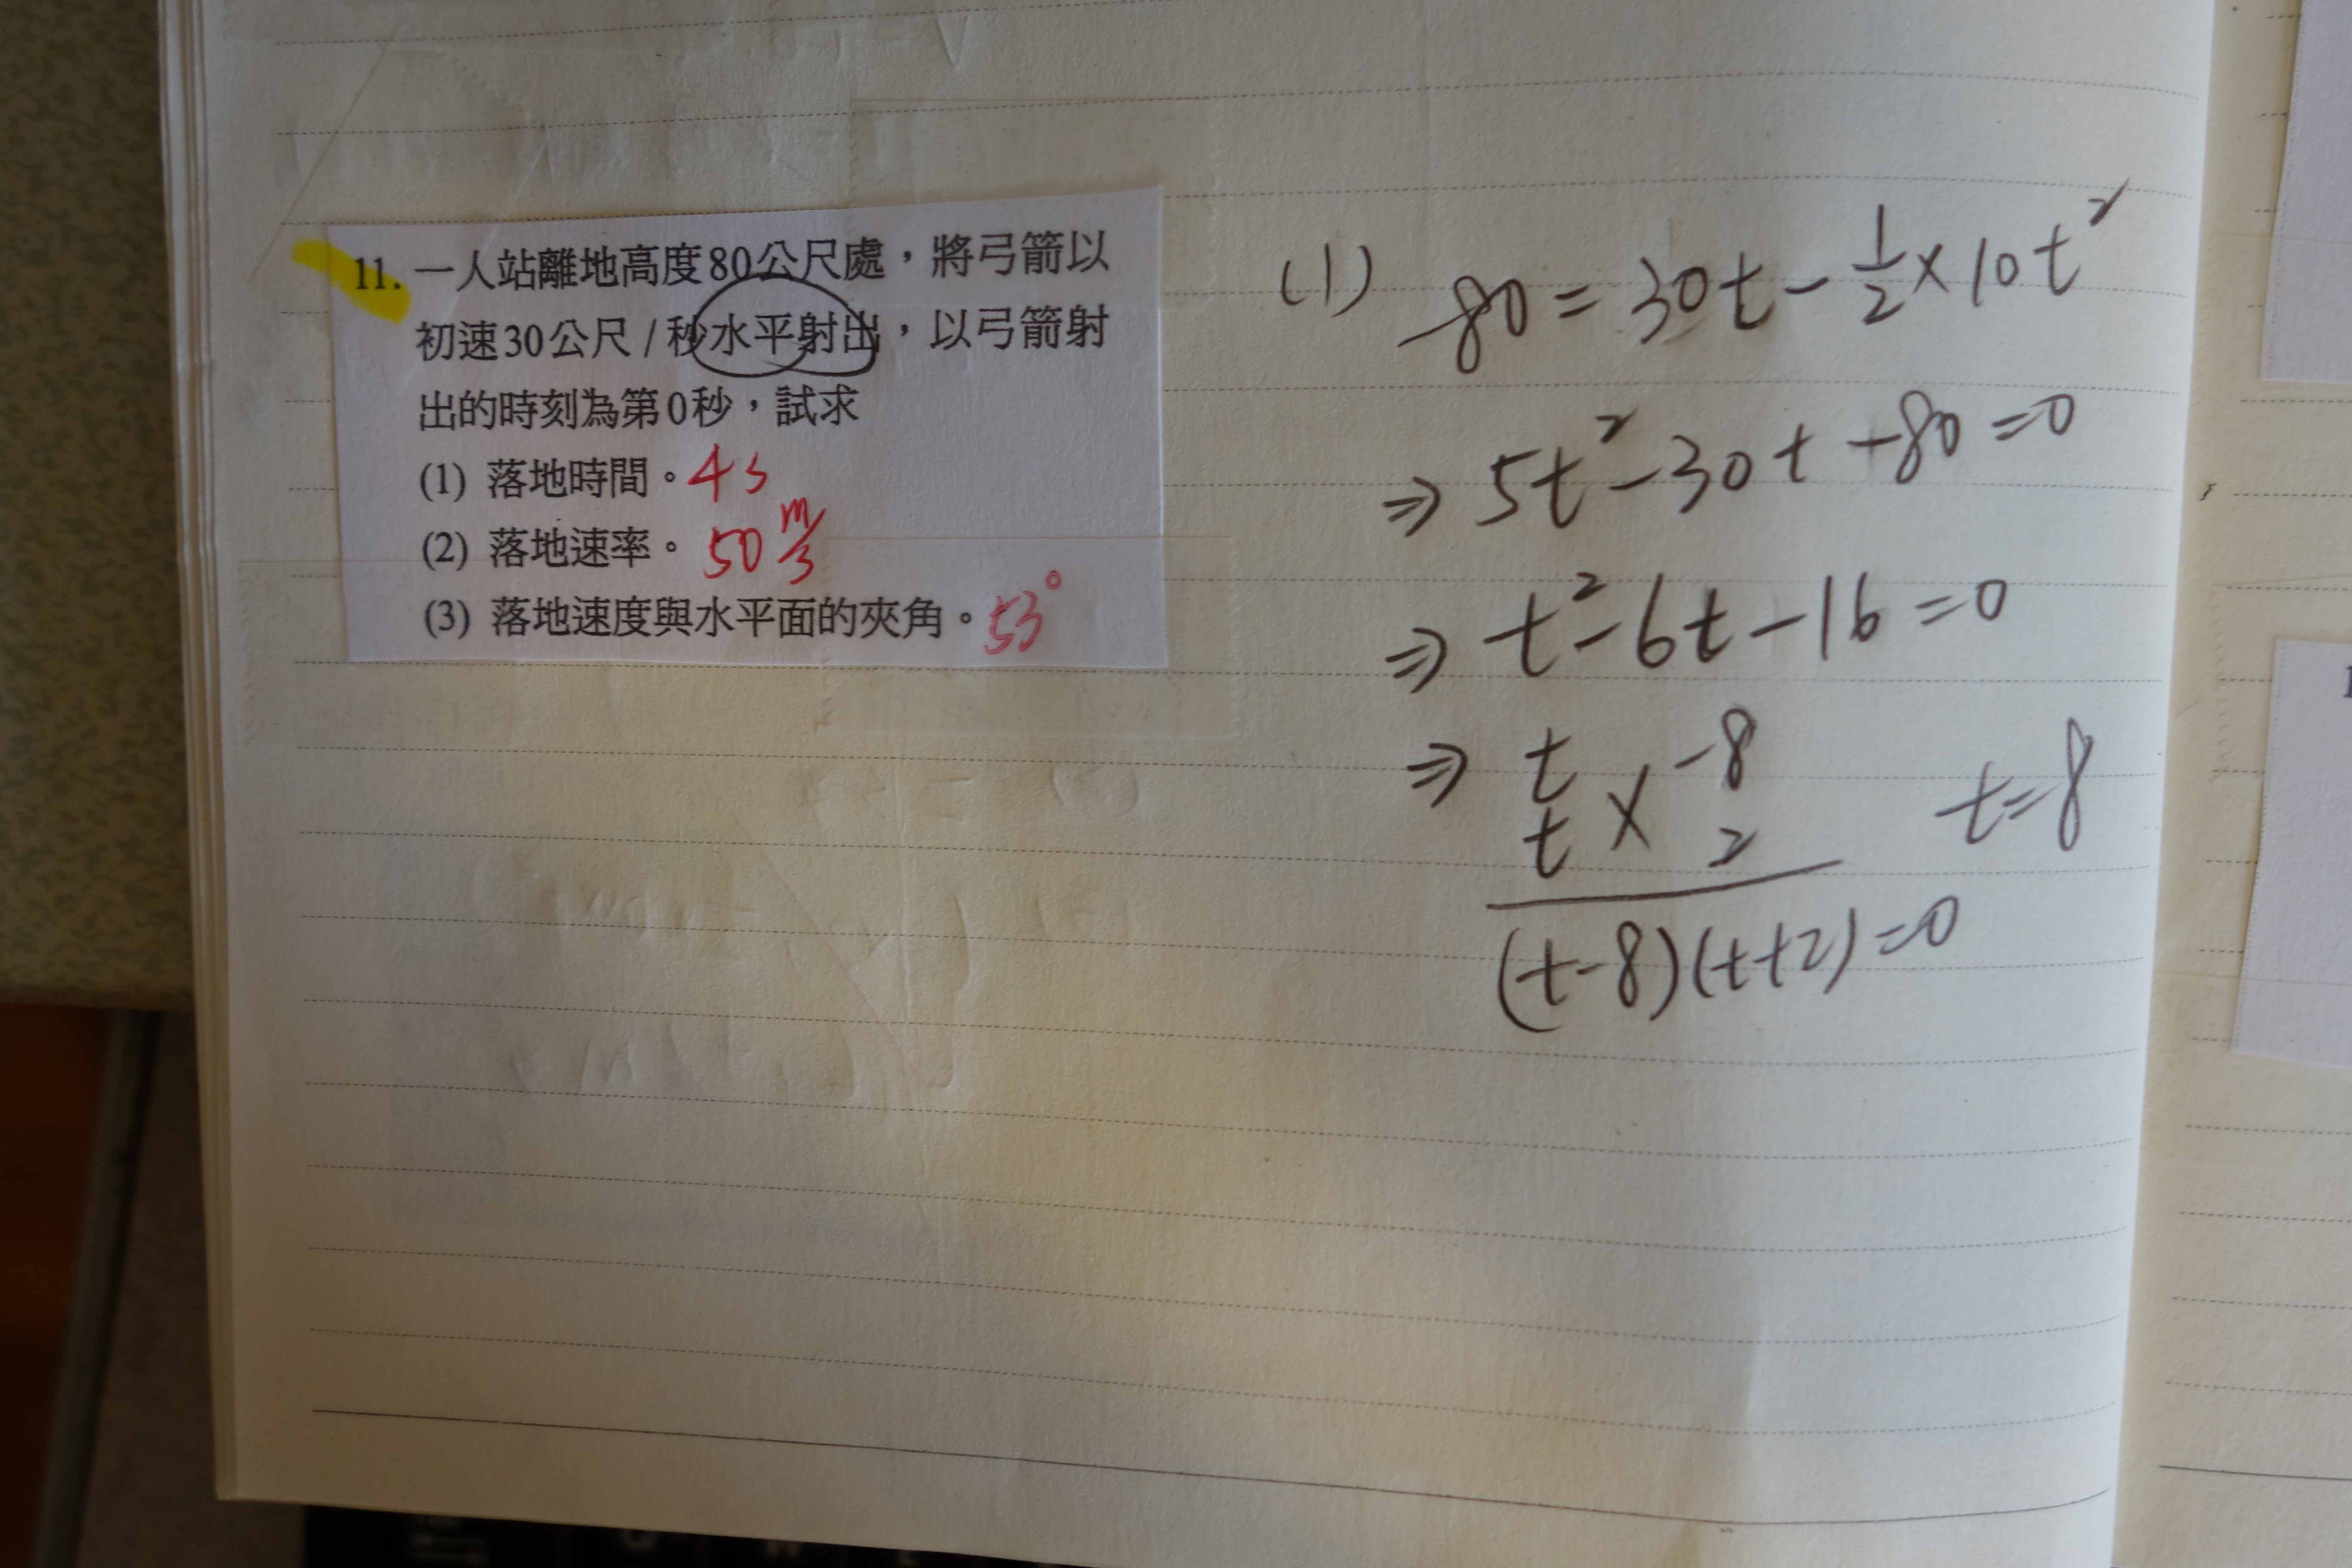 11. 一人站離地高度80公尺處，將弓箭以
初速30公尺/秒水平射出，以弓箭射
出的時刻為第0秒，試求
(1) 落地時間。4s
(2) 落地速率。50 m/s
(3) 落地速度與水平面的夾角。53°
(1) -80 = 30t - 1/2 × 10t²
⇒ 5t² - 30t + -80 = 0
⇒ t² - 6t - 16 = 0
⇒ t -8
t × 2 t = 8
(t-8)(t+2) = 0